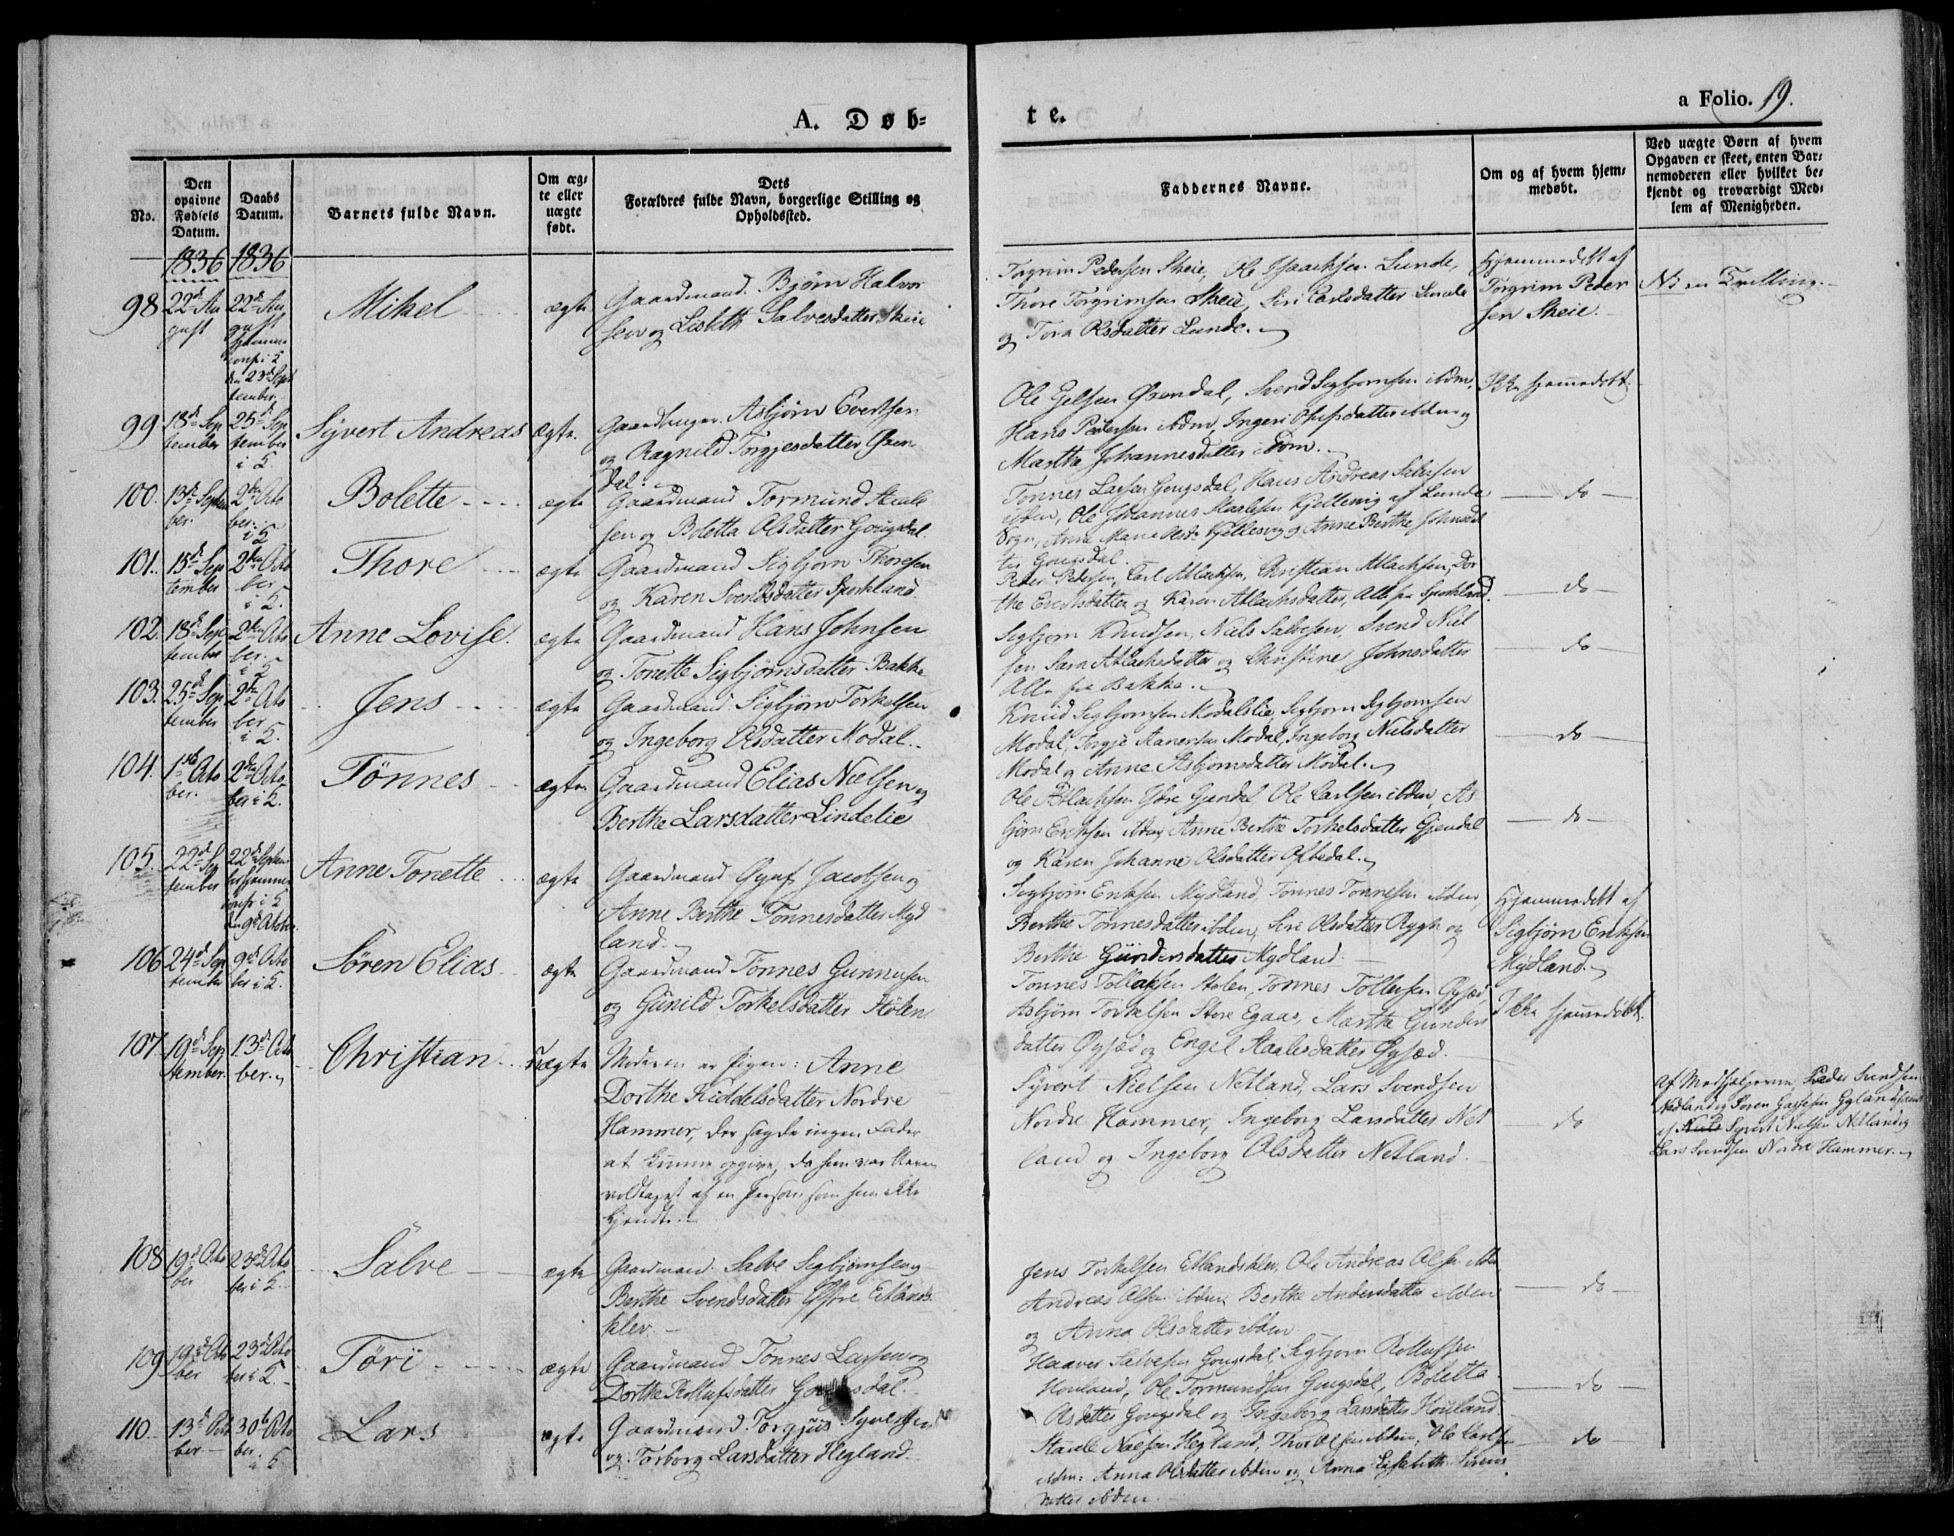 A. Døb=
te.
a Folio. 19.
No.
Den opgivne Fødsels Datum.
Daabs Datum.
Barnets fulde Navn.
Om æg=
te eller
uægte
født.
Dets
Forældres fulde Navn, borgerlige Stilling og
Opholdssted.
Faddernes Navne.
Om og af hvem hjem=
medøbt.
Ved uægte Børn af hvem
Opgaven er skeet, enten Bar=
nemoderen eller hvilket be=
kjendt og troværdigt Med=
lem af Menigheden.
1836 1836
98. 22de Au
gust
22de Au
gust
Mikel
ægte
Gaardmand Bjørn Halvor
sen og Lisbeth Salvesdatter Skeie
Torgrim Pedersen Skeie, Ole Isaachsen Lunde,
Thore Torgrimsen Skeie, Siri Carlsdatter Lunde
og Tora Olsdatter Lunde.
Hjemmedøbt af
Torgrim Peder
sen Skeie.
NB en Trilling
99 18de Sep
tember
25de Sep
tember
i K.
Syvert Andreas
ægte.
Asbjørn Evertsen
og Ragnild Torgjesdatter Øren
dal.
Ole Gelsen Ørendal, Svend Sigbjørnsen ibdm,
Hans Pedersen ibdm, Ingeri
Martha Johannesdatter ibdm.
Ikke hjemmedøbt
100. 13de Septem
ber.
2den Octo
ber.
i K
Bolette
ægte
Gaardmand Tormund Staale
sen og Boletta Olsdatter Gougsdal.
Tønnes Larsen Gougsdal, Hans Andreas Salvesen
ibden, Ole Johannes Staalesen Kjellevig af Lunde
Sogn, Anne Marie Kjellevig og Anne Berthe Johnsdat
ter Gougsdal.
do
101. 15de Sep
tember
2den Octo
ber
i K.
Thore
ægte
Gaardmand Sigbjørn Thoresen
og Karen Svendsdatter Sporkland.
Peder Pedersen, Carl Atlachsen, Christian Atlachsen, Dor
the Erichsdatter og Karen Atlachsdatter, Alle fra Sporkland.
do
102. 18de Sep
tember
2den Octo
ber.
i K
Anne Lovise
ægte
Gaardmand Hans Johnsen
og Tonette Sigbjørnsdatter Bakke
Sigbjørn Knudsen, Niels Salvesen, Svend Niel
sen Sara Atlachsdatter og Christine Johnsdatter
Alle fra Bakke.
do
103. 25de Sep
tember
2den Octo
ber
i K.
Jens
ægte
Gaardmand Sigbjørn Torkelsen
og Ingeborg Olsdatter Modal.
Knud Sigbjørnsen Modalslie, Sigbjørn Sigbjørnsen
Modal, Torgje Aanensen Modal, Ingeborg Nielsdatter
Modal og Anne Asbjørnsdatter Modal.
do
104. 1ste Octo
ber.
2den Octo
ber i K.
Tønnes
ægte
Gaardmand Elias Nielsen og
Berthe Larsdatter Lindelie
Ole Atlachsen Gjendal, Ole Carlsen ibden, As
bjørn Erichsen ibden, Anne Berthe Torkelsdatter Gjendal
og Karen Johanne Olsdatter Ofbedal.
do
105. 22de Sep
tember
22de Septem
Anne Tonette
ægte
Gaardmand Jacobsen og
Anne Berthe Tønnesdatter Myd
land.
Sigbjørn Erichsen Mydland, Tønnes Tønnesen ibden,
Berthe Tønnesdatter ibden, Siri Olsdatter Rygh og
Berthe Gundersdatter Mydland.
Hjemmedøbt af
Sigbjørn Erichsen
Mydland.
106 24de Sep
tember
9de Octo
ber i K.
Søren Elias
ægte
Gaardmand Tønnes Gunnusen
og Günild Torkelsdatter Stølen
Tønnes Tollaksen Stølen, Tønnes Tollersen Øysæd
Asbjørn Torkelsen Store Egaas, Martha Gunders
datter Øysæd og Engel Staalesdatter Øysæd.
Ikke hjemmedøbt.
107 19de Sep
tember.
13de Octo
ber.
Christian
uægte
Moderen er Pigen: Anne
Dorthe Kiddelsdatter Nordre
Hammer, der sagde ingen Fader
at kunne opgive, da hun var bleven
voldtaget af en Person som hun ikke
kjendte.
Syvert Nielsen Netland, Lars Svendsen
Nordre Hammer, Ingeborg Larsdatter Net
land og Ingeborg Olsdatter Netland.
do
Af Peder Svendsen
Netland og Søren
af Syvert Nielsen Netland og
Lars Svendsen Nordre Hammer.
108 19de Octo
ber
23de Octo
ber i K.
Salve
ægte
Gaardmand Salve Sigbjørnsen og
Berthe Svendsdatter Eitlands
klev.
Jens Torkelsen Etlandsklev, Ole Andreas Olsen ibden
Andreas Olsen ibden, Berthe Andersdatter ibden
og Anna Olsdatter ibden
do
109 19de Octo
ber
23de Octo
ber i K.
Töri
ægte
Gaardmand Tønnes Larsen og
Dorthe Rolfufsdatter Gougsdal.
Haaver Salvesen Gougsdal, Sigbjørn
Houland, Ole Tormundsen Gougsdal, Boletta
Olsdatter Gougsdal og Ingeborg Larsdatter Houland
do
110. 13de Octo
ber
30te Octo
ber
i K
Lars
ægte
Gaardmand Torgjus Syvertsen
og Torborg Larsdatter Hegland.
Staale Nielsen Hegland, ibden, Ole Carlsen
ibden, Anna Olsdatter ibden og Anna Elisabeth
datter ibden.
do